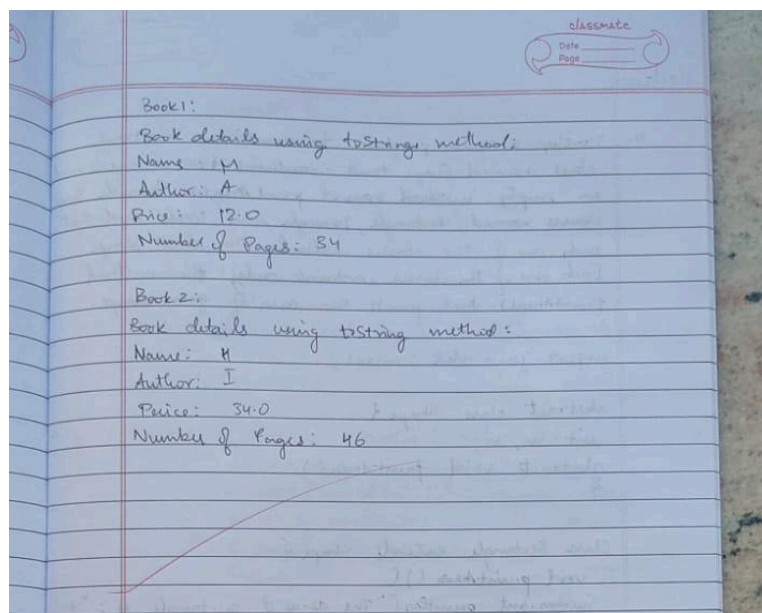 classmate
Date
Page
Book1:
Book details using toString method:
Name: M
Author: A
Price: 12.0
Number of Pages: 34
Book 2:
Book details using toString method:
Name: H
Author: I
Price: 34.0
Number of Pages: 46